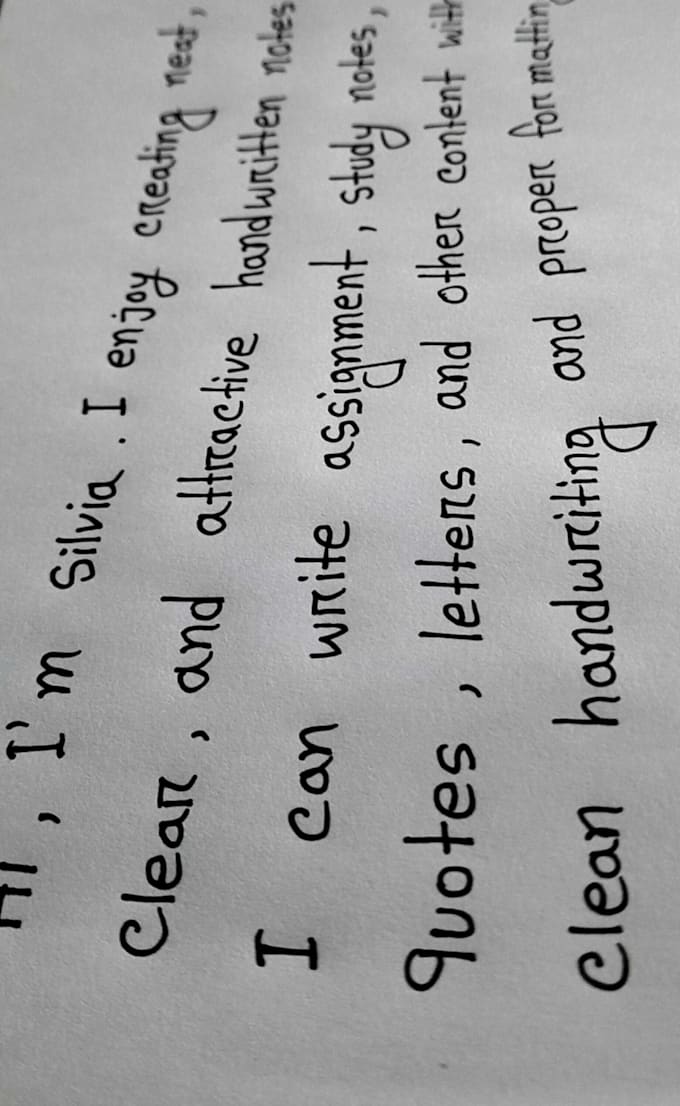 Hi, I'm Silvia. I enjoy creating neat,
Clear, and attractive handwritten notes
I can write assignment, study notes,
quotes, letters, and other content with
clean handwriting and proper formatting